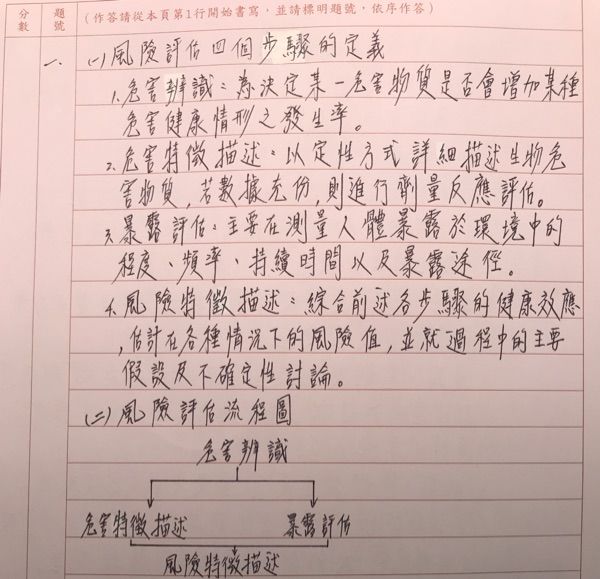 分數 題號 (作答請從本頁第1行開始書寫，並請標明題號，依序作答)
一、(一)風險評估四個步驟的定義
1.危害辨識：為決定某一危害物質是否會增加某種
危害健康情形之發生率。
2.危害特徵描述：以定性方式詳細描述生物危
害物質，若數據充份，則進行劑量反應評估。
3.暴露評估：主要在測量人體暴露於環境中的
程度、頻率、持續時間以及暴露途徑。
4.風險特徵描述：綜合前述各步驟的健康效應
，估計在各種情況下的風險值，並就過程中的主要
假設及不確定性討論。
(二)風險評估流程圖
危害辨識
危害特徵描述 暴露評估
風險特徵描述